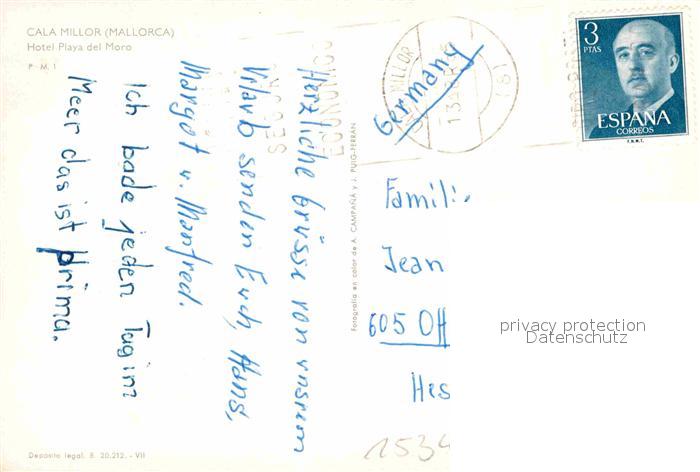 CALA MILLOR (MALLORCA)
Hotel Playa del Moro
P. M. 1
Herzliche Grüsse von unserem
Urlaub senden Euch, Hans,
Margot u. Manfred.
Ich bade jeden Tag im
Meer das ist prima.
Fotografía en color de A. CAMPAÑÁ y J. PUIG-FERRAN
Germany
MILLOR
3
PTAS
ESPAÑA
CORREOS
F.N.M.T.
Famili
Jean
605 Off
Hes
privacy protection
Datenschutz
1534
Depósito legal. B. 20.212. - VII